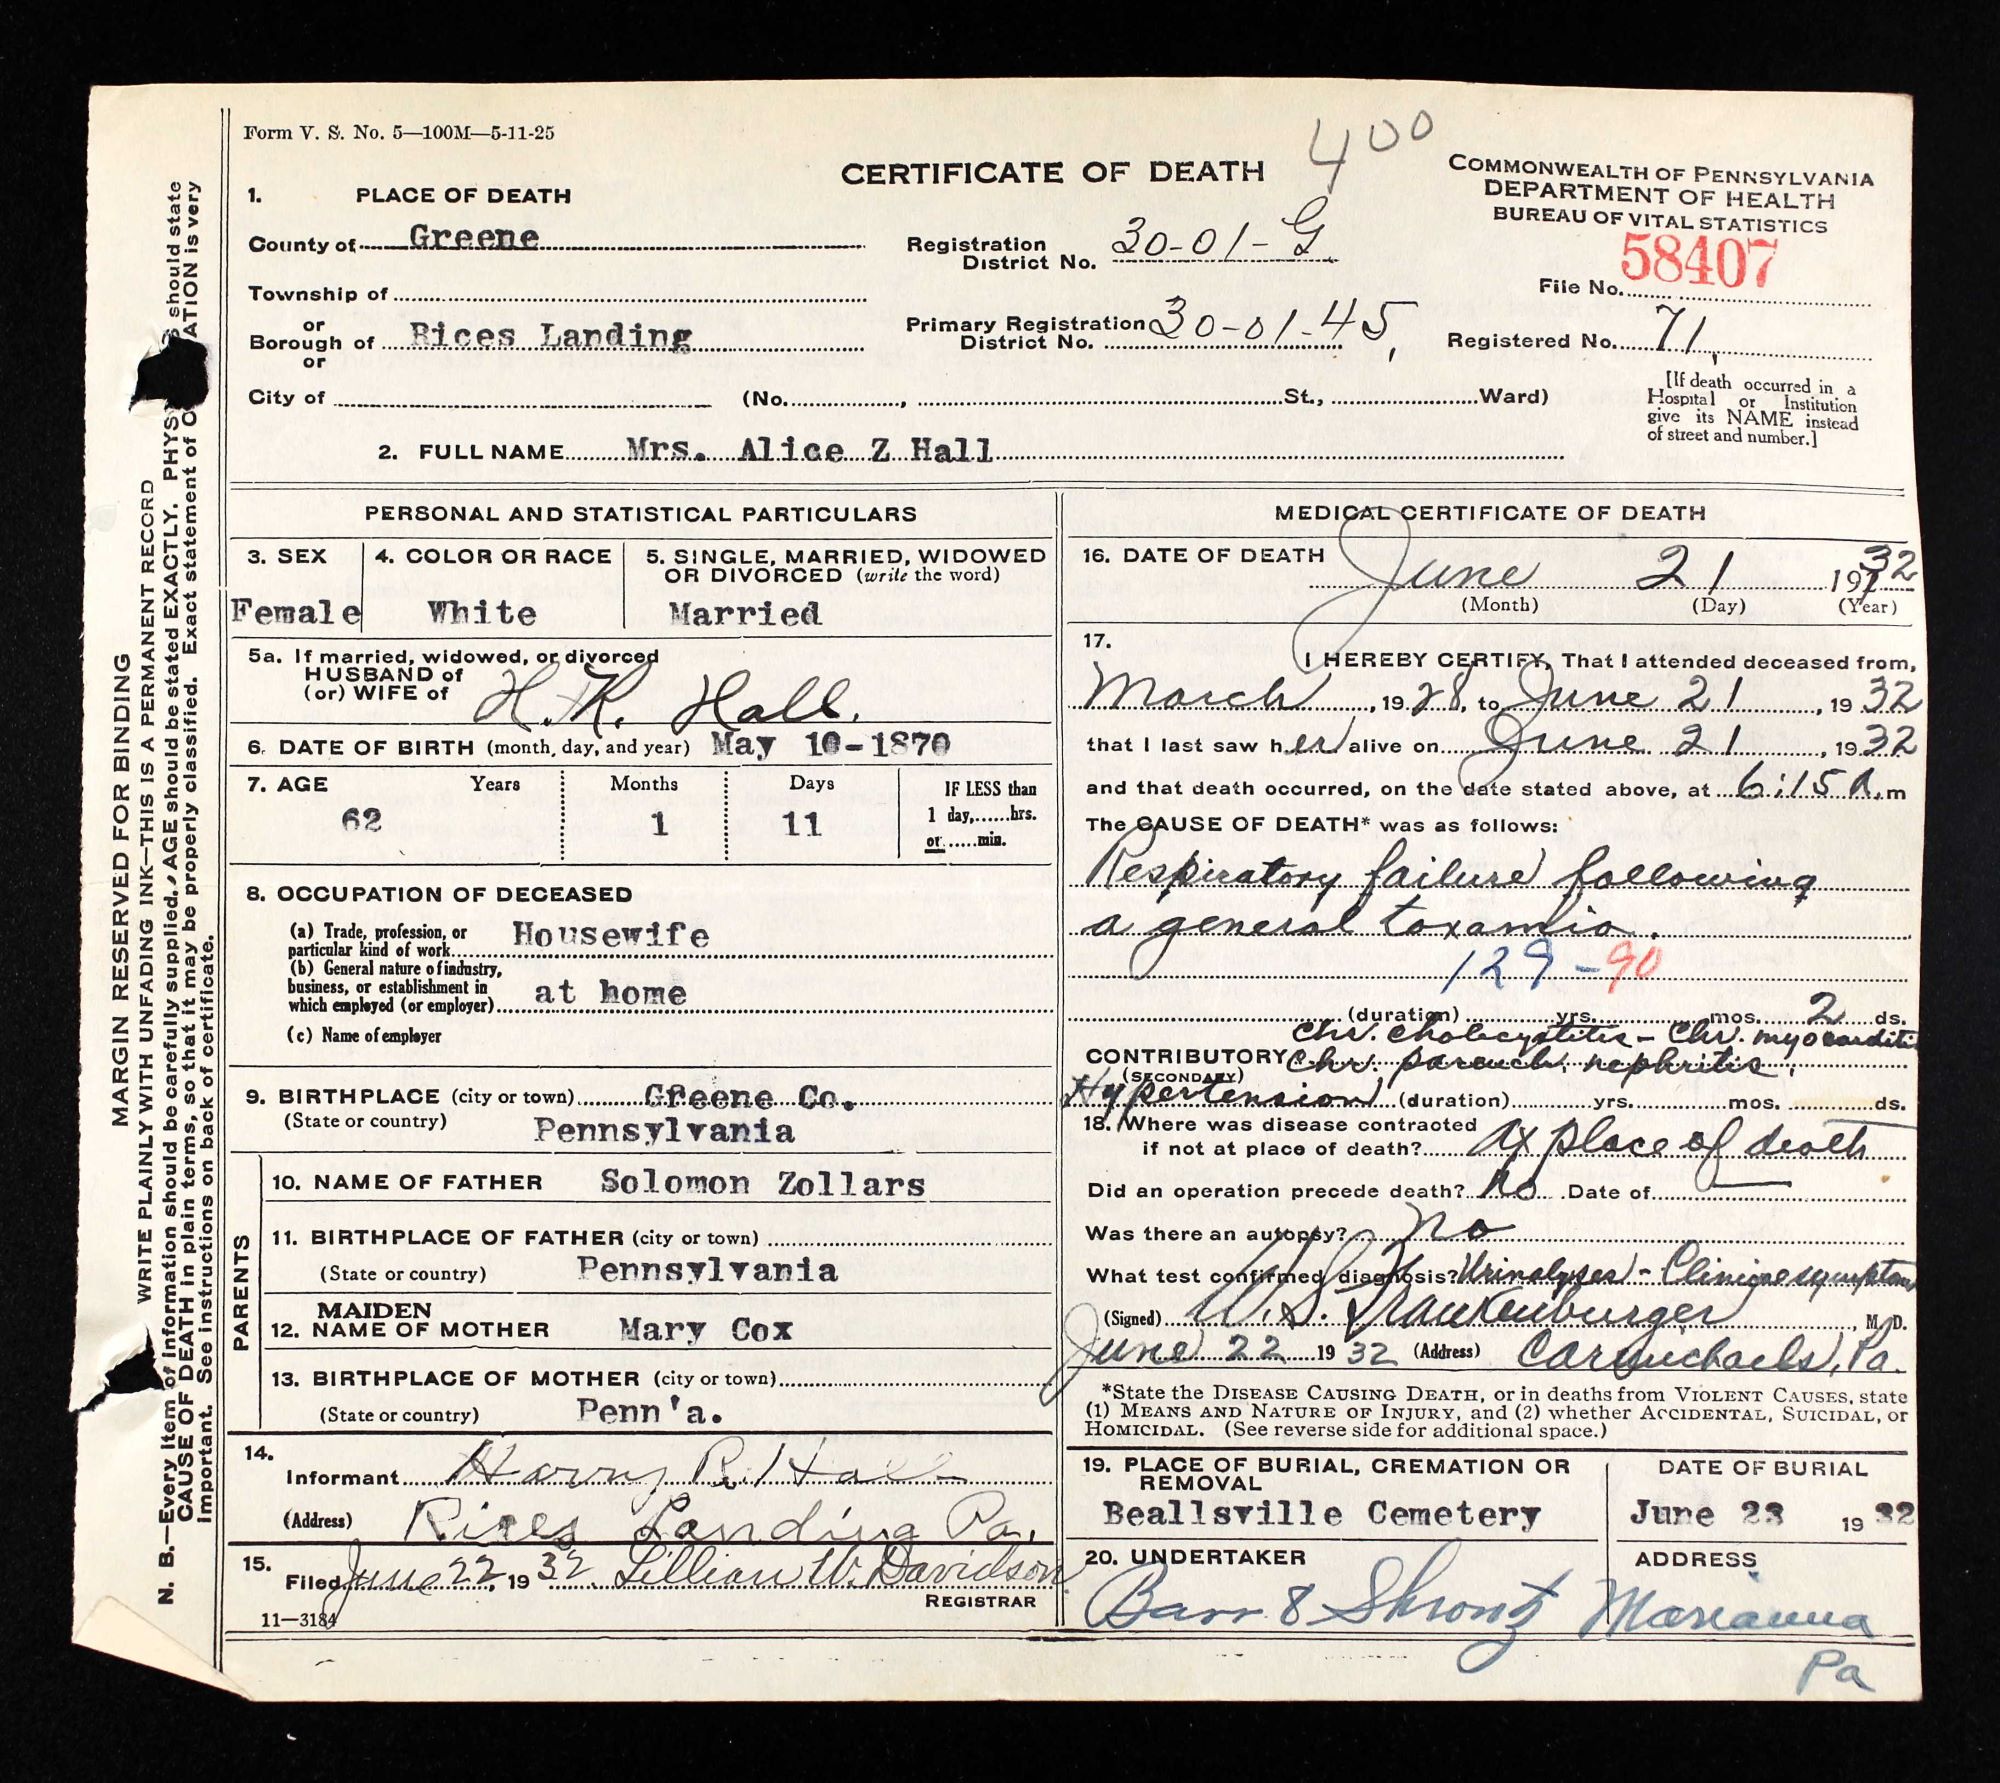 Form V. S. No. 5—100M—5-11-25
400
CERTIFICATE OF DEATH
COMMONWEALTH OF PENNSYLVANIA
DEPARTMENT OF HEALTH
BUREAU OF VITAL STATISTICS
58407
File No.
1. PLACE OF DEATH
County of Greene
Registration District No. 30-01-G
Township of
or
Borough of Rices Landing
or
Primary Registration District No. 30-01-45,
Registered No. 71,
City of (No. , St., Ward)
[If death occurred in a
Hospital or Institution
give its NAME instead
of street and number.]
2. FULL NAME Mrs. Alice Z Hall
MARGIN RESERVED FOR BINDING
WRITE PLAINLY WITH UNFADING INK—THIS IS A PERMANENT RECORD
N. B.—Every item of information should be carefully supplied. AGE should be stated EXACTLY. PHYS should state
CAUSE OF DEATH in plain terms, so that it may be properly classified. Exact statement of OC ATION is very
important. See instructions on back of certificate.
PERSONAL AND STATISTICAL PARTICULARS
3. SEX
Female
4. COLOR OR RACE
White
5. SINGLE, MARRIED, WIDOWED
OR DIVORCED (write the word)
Married
5a. If married, widowed, or divorced
HUSBAND of
(or) WIFE of H. K. Hall.
6. DATE OF BIRTH (month, day, and year) May 10-1870
7. AGE Years Months Days
62 1 11
IF LESS than
1 day,......hrs.
or......min.
8. OCCUPATION OF DECEASED
(a) Trade, profession, or
particular kind of work Housewife
(b) General nature of industry,
business, or establishment in
which employed (or employer) at home
(c) Name of employer
9. BIRTHPLACE (city or town) Greene Co.
(State or country) Pennsylvania
PARENTS
10. NAME OF FATHER Solomon Zollars
11. BIRTHPLACE OF FATHER (city or town)
(State or country) Pennsylvania
MAIDEN
12. NAME OF MOTHER Mary Cox
13. BIRTHPLACE OF MOTHER (city or town)
(State or country) Penn'a.
14.
Informant Harry R. Hall
(Address) Rices Landing Pa.
15.
Filed June 22, 1932. Lillian W. Davidson
REGISTRAR
11—3184
MEDICAL CERTIFICATE OF DEATH
16. DATE OF DEATH June 21 1932
(Month) (Day) (Year)
17.
I HEREBY CERTIFY, That I attended deceased from,
March, 1928, to June 21, 1932
that I last saw her alive on June 21, 1932
and that death occurred, on the date stated above, at 6:15 A.m
The CAUSE OF DEATH* was as follows:
Respiratory failure following
a general toxamia.
129-90
(duration) yrs. mos. 2 ds.
Chr. Cholecystitis - Chr. myocarditis
CONTRIBUTORY Chr. parench. nephritis.
(SECONDARY)
Hypertension (duration) yrs. mos. ds.
18. Where was disease contracted
if not at place of death? At place of death
Did an operation precede death? No Date of —
Was there an autopsy? No
What test confirmed diagnosis? Urinalyses - Clinique symptoms
(Signed) W. S. Frankenburger, M. D.
June 22 1932 (Address) Carmichaels, Pa.
*State the DISEASE CAUSING DEATH, or in deaths from VIOLENT CAUSES, state
(1) MEANS AND NATURE OF INJURY, and (2) whether ACCIDENTAL, SUICIDAL, or
HOMICIDAL. (See reverse side for additional space.)
19. PLACE OF BURIAL, CREMATION OR
REMOVAL
Beallsville Cemetery
DATE OF BURIAL
June 23 1932
20. UNDERTAKER
Barr & Shrontz
ADDRESS
Marianna
Pa